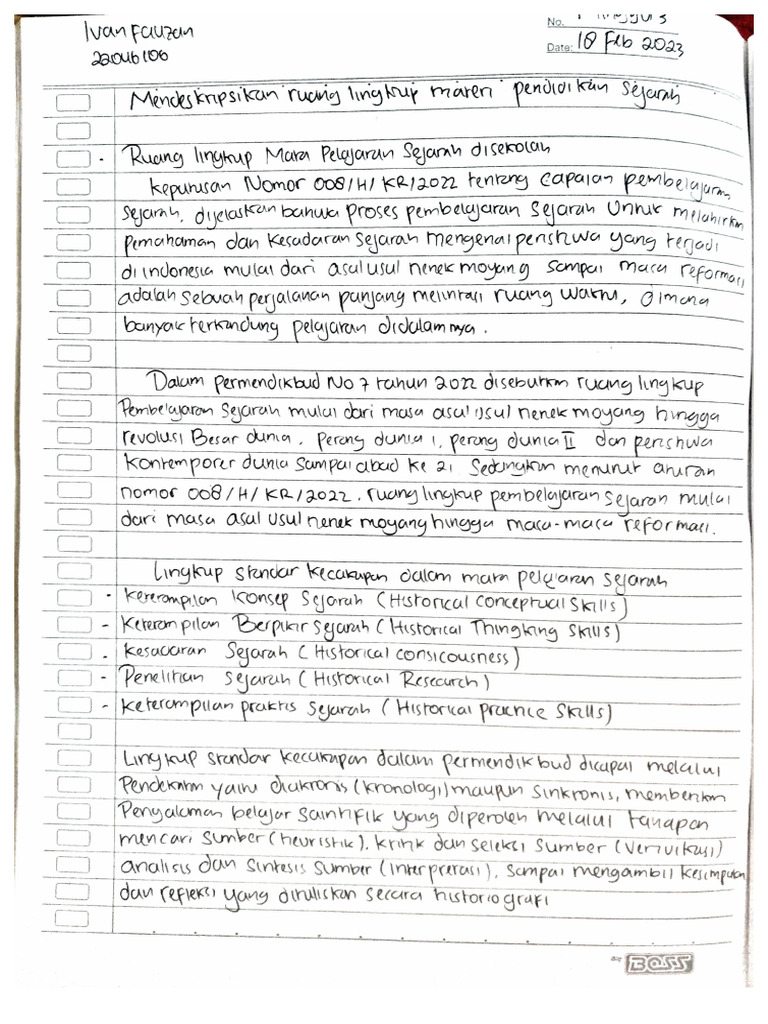 Ivan Fauzan
22046106
No. Minggu 3
Date: 18 Feb 2023
Mendeskripsikan ruang lingkup materi pendidikan sejarah
- Ruang lingkup Mata Pelajaran Sejarah disekolah
Keputusan Nomor 008/H/KR/2022 tentang capaian pembelajaran
sejarah, dijelaskan bahwa proses pembelajaran sejarah untuk melahirkan
pemahaman dan kesadaran sejarah mengenai peristiwa yang terjadi
di indonesia mulai dari asal usul nenek moyang sampai masa reformasi
adalah sebuah perjalanan panjang melintasi ruang waktu, dimana
banyak terkandung pelajaran didalamnya.
Dalam permendikbud No 7 tahun 2022 disebutkan ruang lingkup
Pembelajaran sejarah mulai dari masa asal usul nenek moyang hingga
revolusi Besar dunia, perang dunia I, perang dunia II dan peristiwa
kontemporer dunia sampai abad ke 21 Sedangkan menurut aturan
nomor 008/H/KR/2022. ruang lingkup pembelajaran sejarah mulai
dari masa asal usul nenek moyang hingga masa-masa reformasi.
Lingkup standar kecakapan dalam mata pelajaran sejarah
- Keterampilan Konsep Sejarah (Historical conceptual skills)
- Keterampilan Berpikir sejarah (Historical Thingking skills)
- Kesadaran Sejarah (Historical consicousness)
- Penelitian Sejarah (Historical Research)
- Keterampilan praktis sejarah (Historical practice skills)
Lingkup standar kecakapan dalam permendikbud dicapai melalui
Pendekatan yaitu diakronis (kronologi) maupun sinkronis, memberikan
Pengalaman belajar saintifik yang diperoleh melalui tahapan
mencari sumber (heuristik), kritik dan seleksi sumber (verivikasi)
analisis dan sintesis sumber (interpretasi), sampai mengambil kesimpulan
dan refleksi yang dituliskan secara historiografi
BOSS